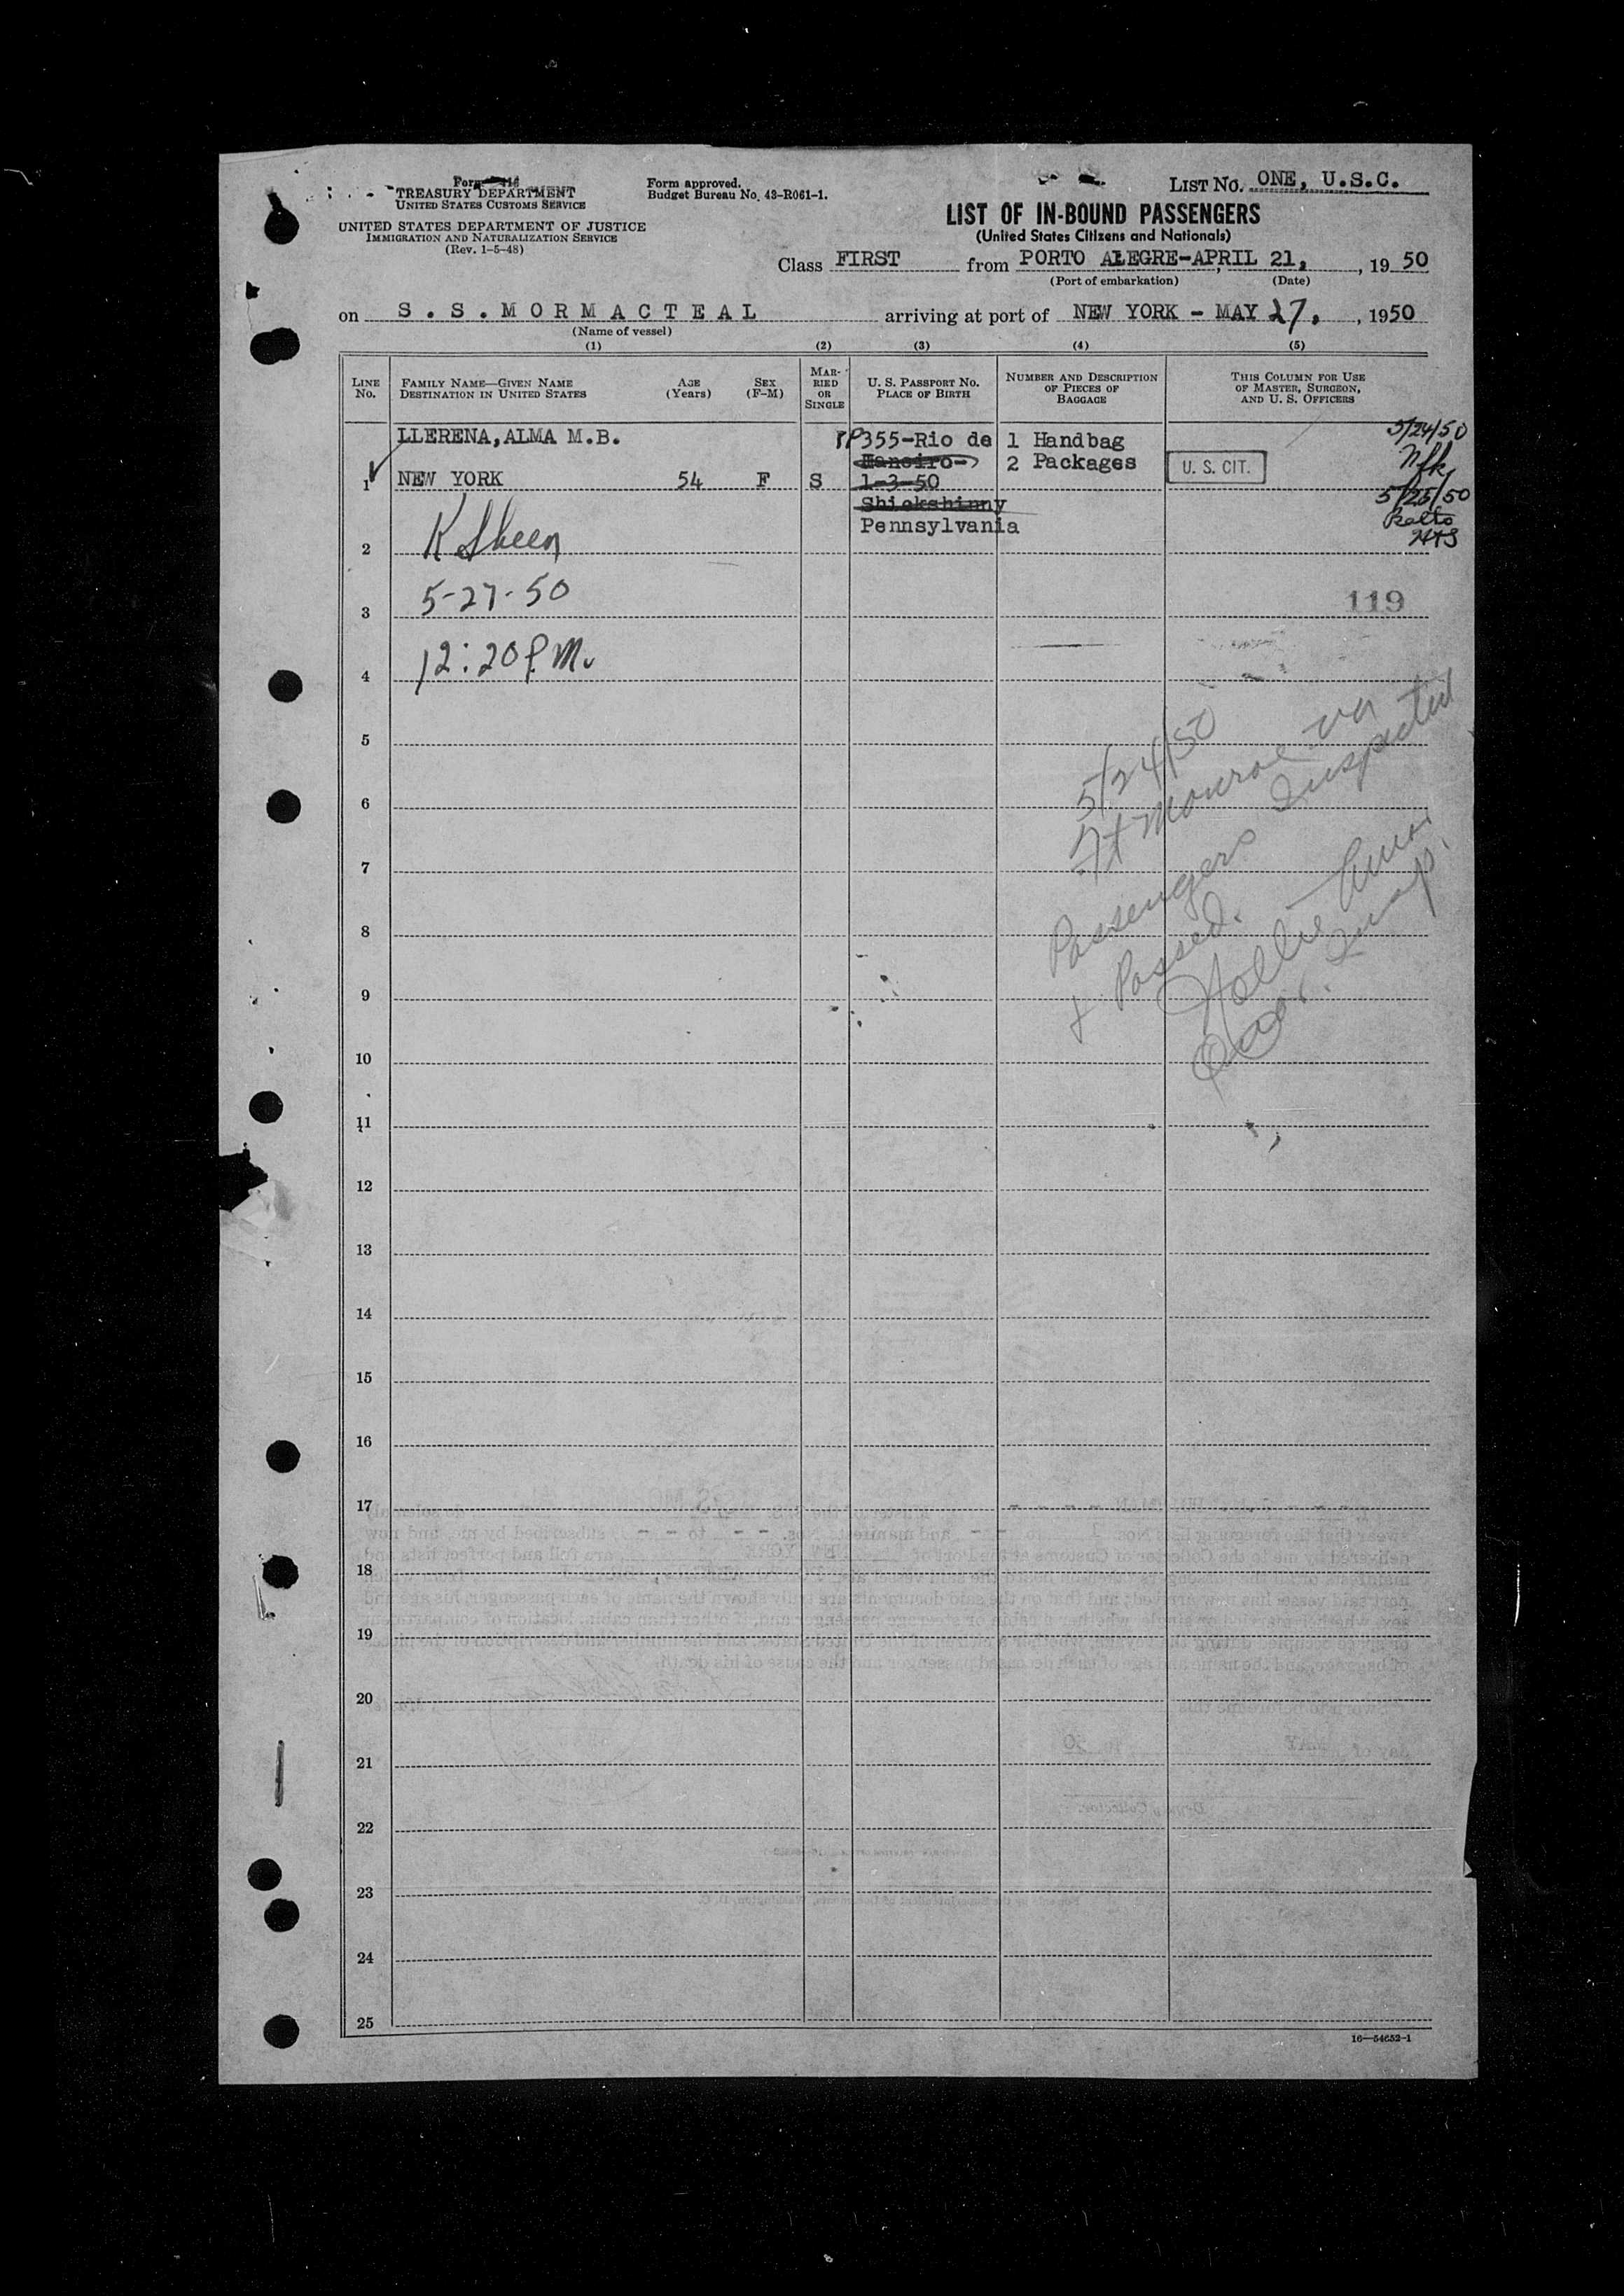 Form
TREASURY DEPARTMENT
UNITED STATES CUSTOMS SERVICE
UNITED STATES DEPARTMENT OF JUSTICE
IMMIGRATION AND NATURALIZATION SERVICE
(Rev. 1-5-48)
Form approved.
Budget Bureau No. 43-R061-1.
LIST No. ONE, U.S.C.
LIST OF IN-BOUND PASSENGERS
(United States Citizens and Nationals)
Class FIRST from PORTO ALEGRE-APRIL 21, , 19 50
(Port of embarkation) (Date)
on S.S.MORMACTEAL arriving at port of NEW YORK - MAY 27, , 1950
(Name of vessel)
(1) (2) (3) (4) (5)
LINE No.
FAMILY NAME—GIVEN NAME
DESTINATION IN UNITED STATES
AGE
(Years)
SEX
(F-M)
MAR-
RIED
OR
SINGLE
U. S. PASSPORT No.
PLACE OF BIRTH
NUMBER AND DESCRIPTION
OF PIECES OF
BAGGAGE
THIS COLUMN FOR USE
OF MASTER, SURGEON,
AND U. S. OFFICERS
LLERENA, ALMA M.B.
1 NEW YORK 54 F S
PP355-Rio de
Maneiro-
1-3-50
Shickshinny
Pennsylvania
1 Handbag
2 Packages
U. S. CIT.
5/24/50
Nfk
5/25/50
Balto
2 K Skeen
3 5-27-50
119
4 12:20 P.M.
5
5/24/50
6
Ft Monroe va
7
Passengers Inspected
8
& Passed.
9
Hollie
10
Insp.
11
12
13
14
15
16
17
18
19
20
21
22
23
24
25
16—54652-1